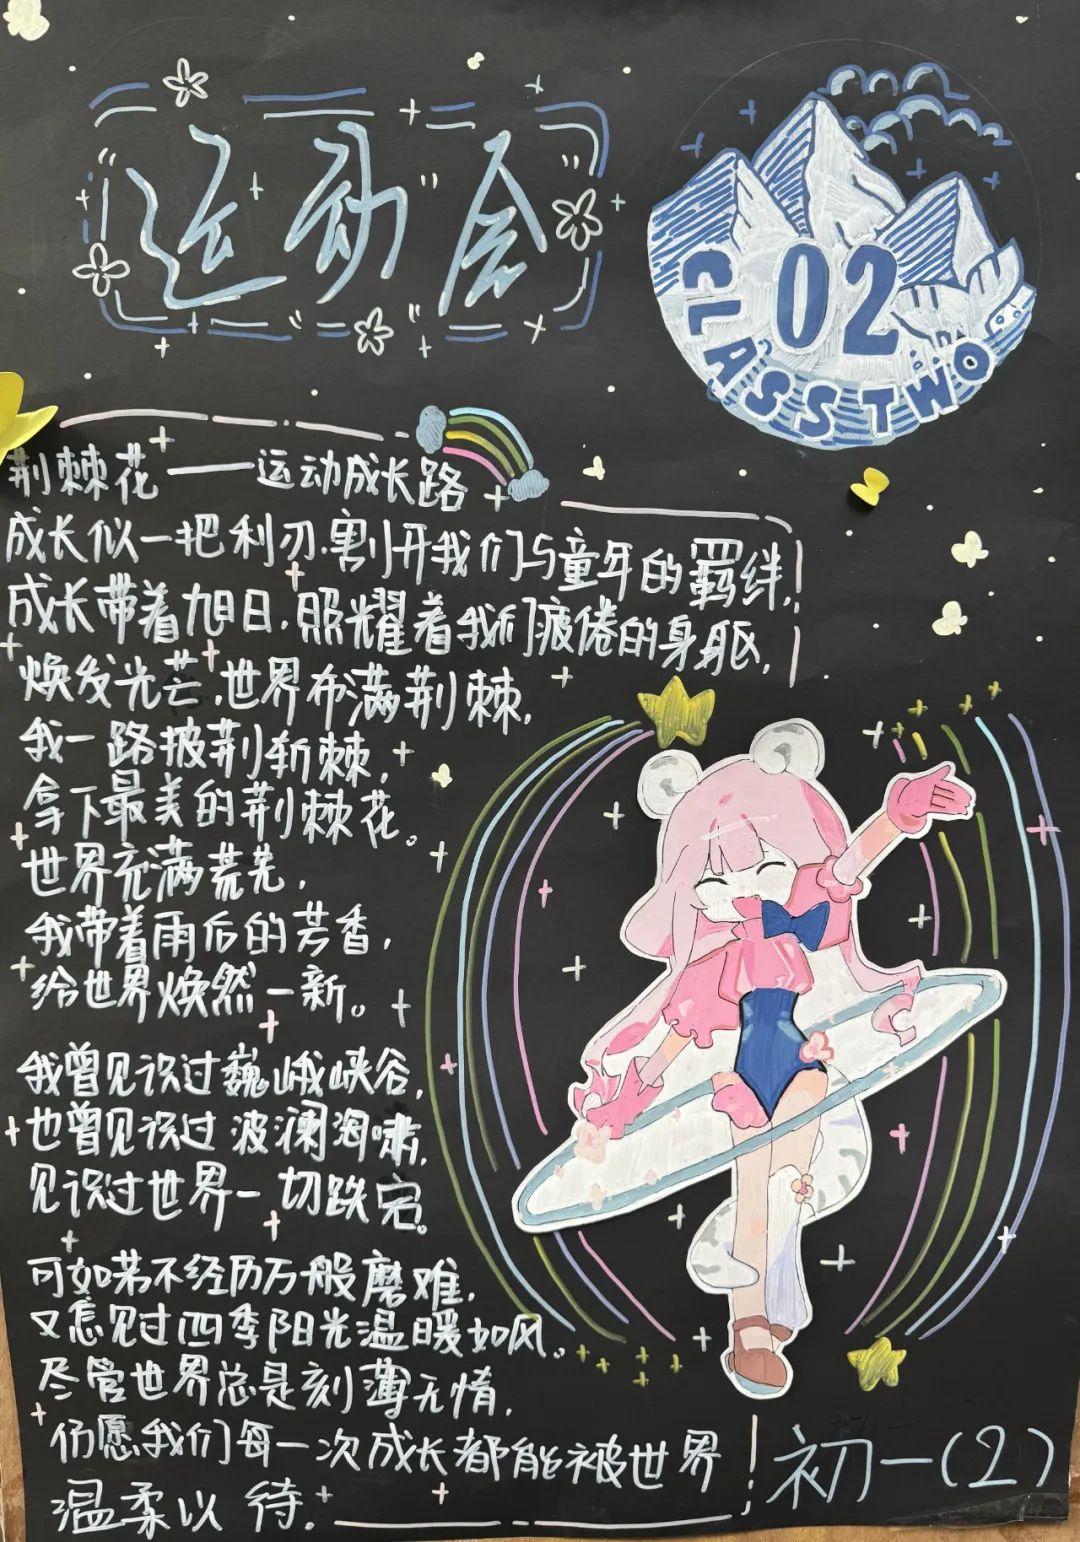 运动会
02
CLASS TWO
荆棘花——运动成长路
成长似一把利刃,割开我们与童年的羁绊,
成长带着旭日,照耀着我们疲倦的身躯,
焕发光芒,世界布满荆棘,
我一路披荆斩棘,
拿下最美的荆棘花。
世界充满荒芜,
我带着雨后的芳香,
给世界焕然一新。
我曾见识过巍峨峡谷,
也曾见识过波澜海啸,
见识过世界一切跌宕。
可如若不经历万般磨难,
又怎见过四季阳光温暖如风。
尽管世界总是刻薄无情,
仍愿我们每一次成长都能被世界
温柔以待.
初一(2)